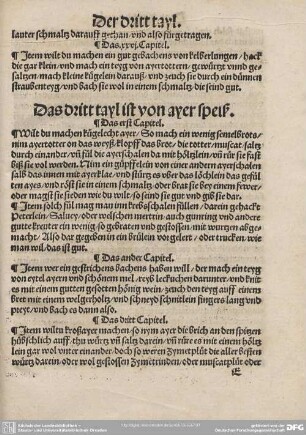 Der dritt tayl.
lauter schmaltz darauff gethan/vnd also für getragen.
¶ Das .xxvj. Capitel.
¶ Item wilt du machen ein gut gebachens von kelberlungen/hack
die gar klein/vnd mach ein teyg von ayertottern/gewürtz vnnd ge-
saltzen/mach kleine kügelein darauß/vnd zeuch sie durch ein dünnen
straubenteyg/vnd bach sie wol in einem schmaltz/die seind gut.
Das dritt tayl ist von ayer speiß.
¶ Das erst Capitel.
¶ Wilt du machen kügelecht ayer/So mach ein wenig semelbrots/
nim ayertotter on das weyß/klopff das brot/die totter/muscat/saltz
durch einander/vñ füll die ayerschalen da mit/höltzlein/vñ rür sie fast
biß sie sol werden. Nim ein güpfflein von einer andern ayerschalen
salb das innen mit ayerklar/vnd stürtz es vber das löchlein das gefül
ten ayes/vnd röst sie in einem schmaltz/oder brat sie bey einem fewer/
oder magst sie sieden wie du wilt/so sind sie gut vnd gib sie dar.
¶ Item solch fül mag man im krebschalen füllen/darein gehackt
Peterlein/Saluey/oder welschen mertrin/auch gunring vnd andere
gutte kreuter ein wenig/so gebraten vnd gestossen/mit wurtzen abge-
macht/Also dar gegeben in ein brülein vorgelert/oder trucken/wie
man wil/das ist gut.
¶ Das ander Capitel.
¶ Item wer ein gestrichens bachens haben will/der mach ein teyg
von eytel ayern vnd schönem mel/reyb leckuchen darunter/vnd knit
es mit einem gutten gesotten hönig wein/zeuch den teyg auff einem
bret mit einem welgerholtz/vnd schneyd schnitlein fingers lang vnd
preyt/vnd bach es dann also.
¶ Das dritt Capitel.
¶ Item wiltu kroßayer machen/so nym ayer die brich an den spitzen
hübschlich auff/thu würtz vñ saltz darein/vñ rüre es mit einem höltz
lein gar wol vnter einander/doch so weren Zymetplüt die aller besten
würtz darein/oder wol gestossen Zymetrinden/oder muscatplüt oder
E